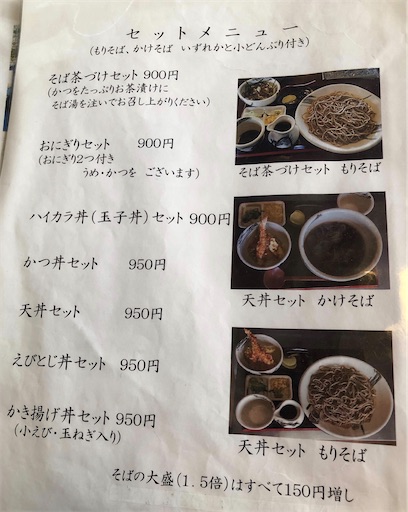 セットメニュー
(もりそば、かけそば いずれかと小どんぶり付き)
そば茶づけセット 900円
(かつをたっぷりお茶漬けに
そば湯を注いでお召し上がりください)
そば茶づけセット もりそば
おにぎりセット 900円
(おにぎり2つ付き
うめ・かつを ございます)
ハイカラ丼(玉子丼)セット 900円
かつ丼セット 950円
天丼セット かけそば
天丼セット 950円
えびとじ丼セット 950円
かき揚げ丼セット 950円
(小えび・玉ねぎ入り)
天丼セット もりそば
そばの大盛(1.5倍)はすべて150円増し